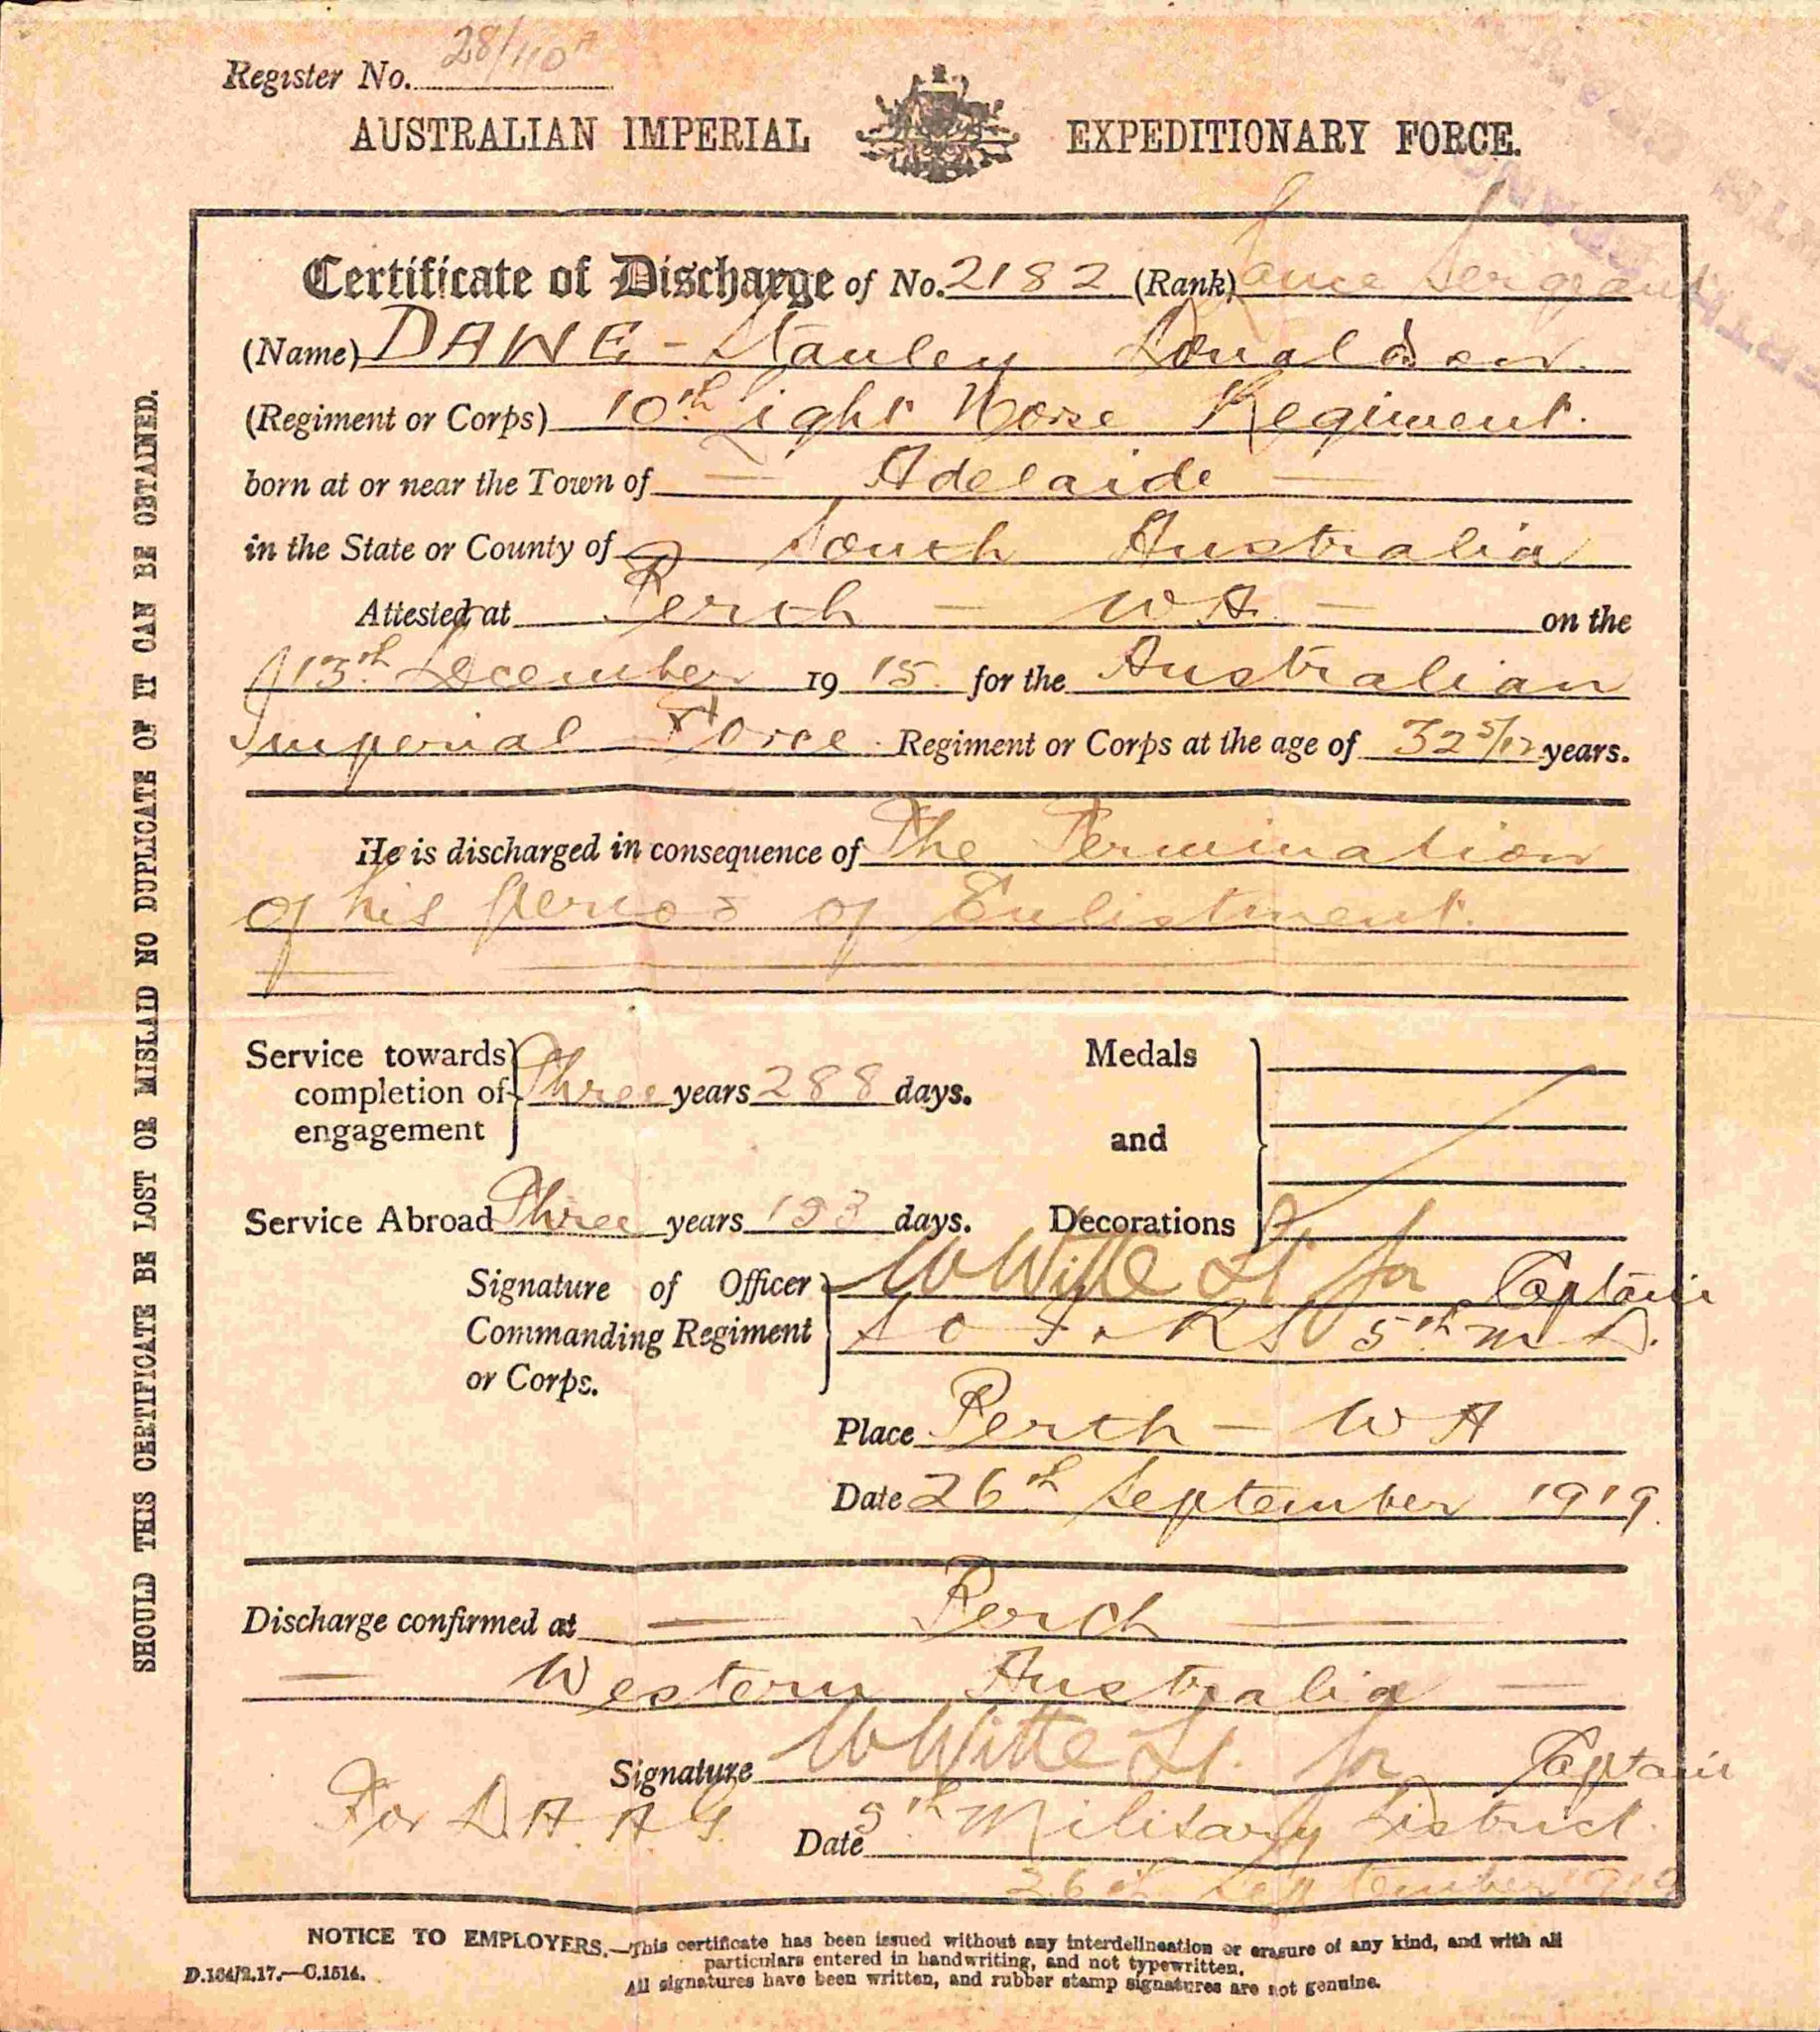 Register No. 28/110A
AUSTRALIAN IMPERIAL EXPEDITIONARY FORCE.
Certificate of Discharge of No. 2182 (Rank) Lance Sergeant
(Name) DAWE - Stanley Donaldson.
(Regiment or Corps) 10th Light Horse Regiment.
born at or near the Town of — Adelaide —
in the State or County of South Australia
Attested at Perth — WA — on the
13th December 1915 for the Australian
Imperial Force. Regiment or Corps at the age of 32 5/12 years.
He is discharged in consequence of The Termination
of his period of Enlistment.
Service towards completion of engagement Three years 288 days.
Medals and Decorations
Service Abroad Three years days.
Signature of Officer Commanding Regiment or Corps. W Witte Lt for Captain
5th M D.
Place Perth — WA
Date 26th September 1919.
Discharge confirmed at — Perth —
— Western Australia —
Signature W Witte Lt. for Captain
For D.A.A.G. 5th Military District.
Date 26th September 1919
NOTICE TO EMPLOYERS.—This certificate has been issued without any interdelineation or erasure of any kind, and with all
particulars entered in handwriting, and not typewritten.
All signatures have been written, and rubber stamp signatures are not genuine.
D.164/2.17.—C.1514.
SHOULD THIS CERTIFICATE BE LOST OR MISLAID NO DUPLICATE OF IT CAN BE OBTAINED.